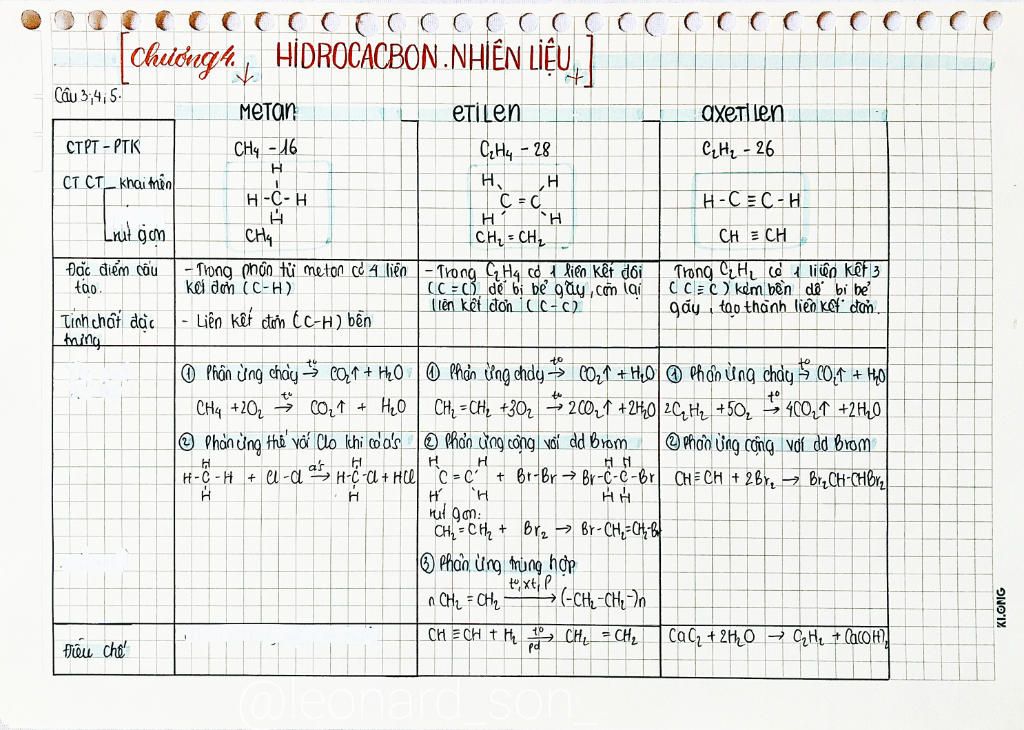 [Chương 4. HIDROCACBON. NHIÊN LIỆU]
Câu 3; 4; 5.
METAN
ETILEN
AXETILEN
CTPT - PTK
CH₄ - 16
C₂H₄ - 28
C₂H₂ - 26
CT CT
khai triển
H
H - C - H
H
H H
C = C
H H
H - C ≡ C - H
rút gọn
CH₄
CH₂ = CH₂
CH ≡ CH
Đặc điểm cấu
tạo.
- Trong phân tử metan có 4 liên
kết đơn (C-H)
- Trong C₂H₄ có 1 liên kết đôi
(C = C) dễ bị bẻ gãy, còn lại
liên kết đơn (C - C)
Trong C₂H₂ có 1 liên kết 3
(C ≡ C) kém bền dễ bị bẻ
gãy, tạo thành liên kết đơn.
Tính chất đặc
trưng
- Liên kết đơn (C-H) bền
① Phản ứng cháy t° → CO₂↑ + H₂O
CH₄ + 2O₂ t° → CO₂↑ + H₂O
② Phản ứng thế với Clo khi có a/s
H H
H-C-H + Cl-Cl a/s → H-C-Cl + HCl
H H
① Phản ứng cháy t° → CO₂↑ + H₂O
CH₂ = CH₂ + 3O₂ t° → 2CO₂↑ + 2H₂O
② Phản ứng cộng với dd Brom
H H H H
C = C + Br-Br → Br-C-C-Br
H H H H
rút gọn:
CH₂ = CH₂ + Br₂ → Br-CH₂=CH₂-Br
③ Phản ứng trùng hợp
t°, xt, P
n CH₂ = CH₂ → (-CH₂-CH₂-)n
① Phản ứng cháy t° → CO₂↑ + H₂O
2C₂H₂ + 5O₂ t° → 4CO₂↑ + 2H₂O
② Phản ứng cộng với dd Brom
CH ≡ CH + 2Br₂ → Br₂CH-CHBr₂
Điều chế
CH ≡ CH + H₂ t° pd → CH₂ = CH₂
CaC₂ + 2H₂O → C₂H₂ + Ca(OH)₂
XI.ONG
@leonard_son_